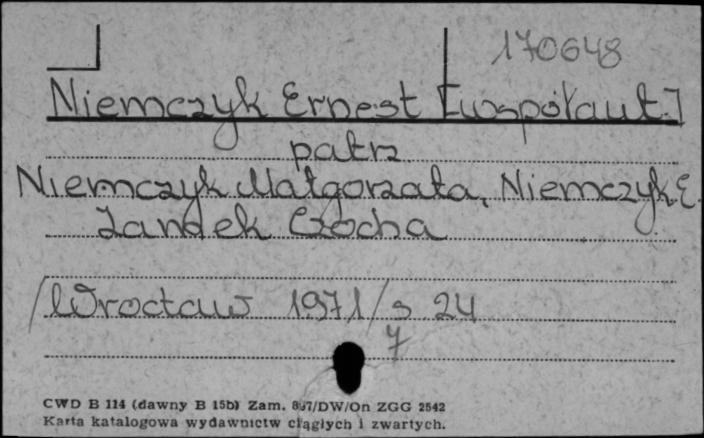 170648
Niemczyk Ernest [współaut.]
patrz
Niemczyk Małgorzata, Niemczyk E.
Zamek Czocha
/Wrocław 1971/ s 24
7
CWD B 114 (dawny B 15b) Zam. 867/DW/On ZGG 2542
Karta katalogowa wydawnictw ciągłych i zwartych.